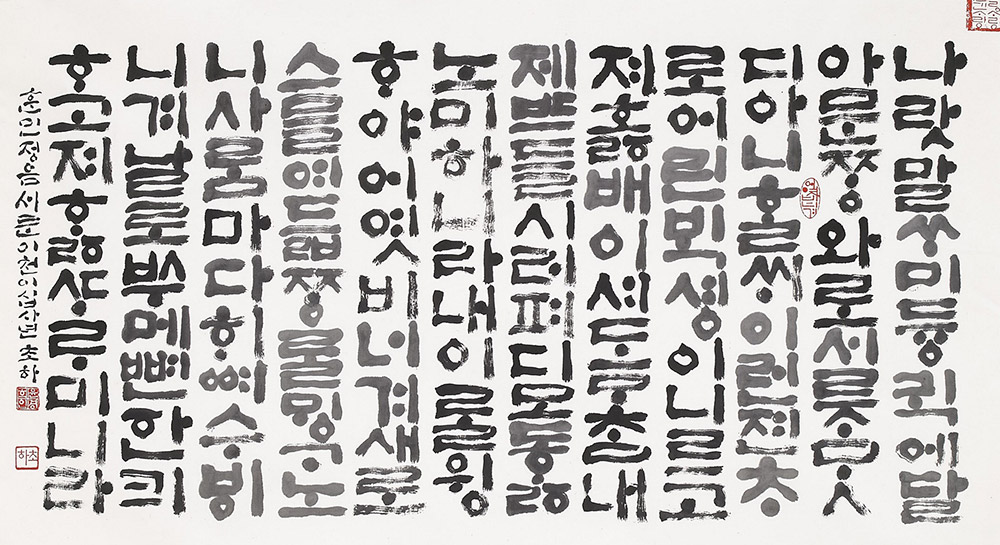 나랏말ᄊᆞ미듕귁에달
아문ᄍᆞᆼ와로서르ᄉᆞᄆᆞᆺ
디아니ᄒᆞᆯᄊᆡ이런젼ᄎᆞ
로어린ᄇᆡᆨ셩이니르고
져홇배이셔도ᄆᆞᄎᆞᆷ내
제ᄠᅳ들시러펴디몯ᄒᆞᇙ
노미하니라내이ᄅᆞᆯ윙
ᄒᆞ야어엿비너겨새로
스믈여듧ᄍᆞᆼᄅᆞᆯᄆᆡᇰᄀᆞ노
니사ᄅᆞᆷ마다ᄒᆡᅇᅧ수ᄫᅵ
니겨날로ᄡᅮ메뼌한킈
ᄒᆞ고져ᄒᆞᇙᄯᆞᄅᆞ미니라
훈민정음서문이천이십사년초하
초하